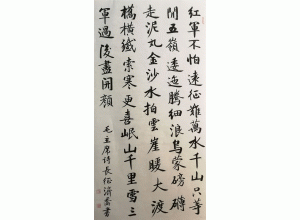 紅軍不怕遠征難萬水千山只等
閒五嶺逶迤騰細浪烏蒙磅礴
走泥丸金沙水拍雲崖暖大渡
橋橫鐵索寒更喜岷山千里雪三
軍過後盡開顏
毛主席詩長征 書